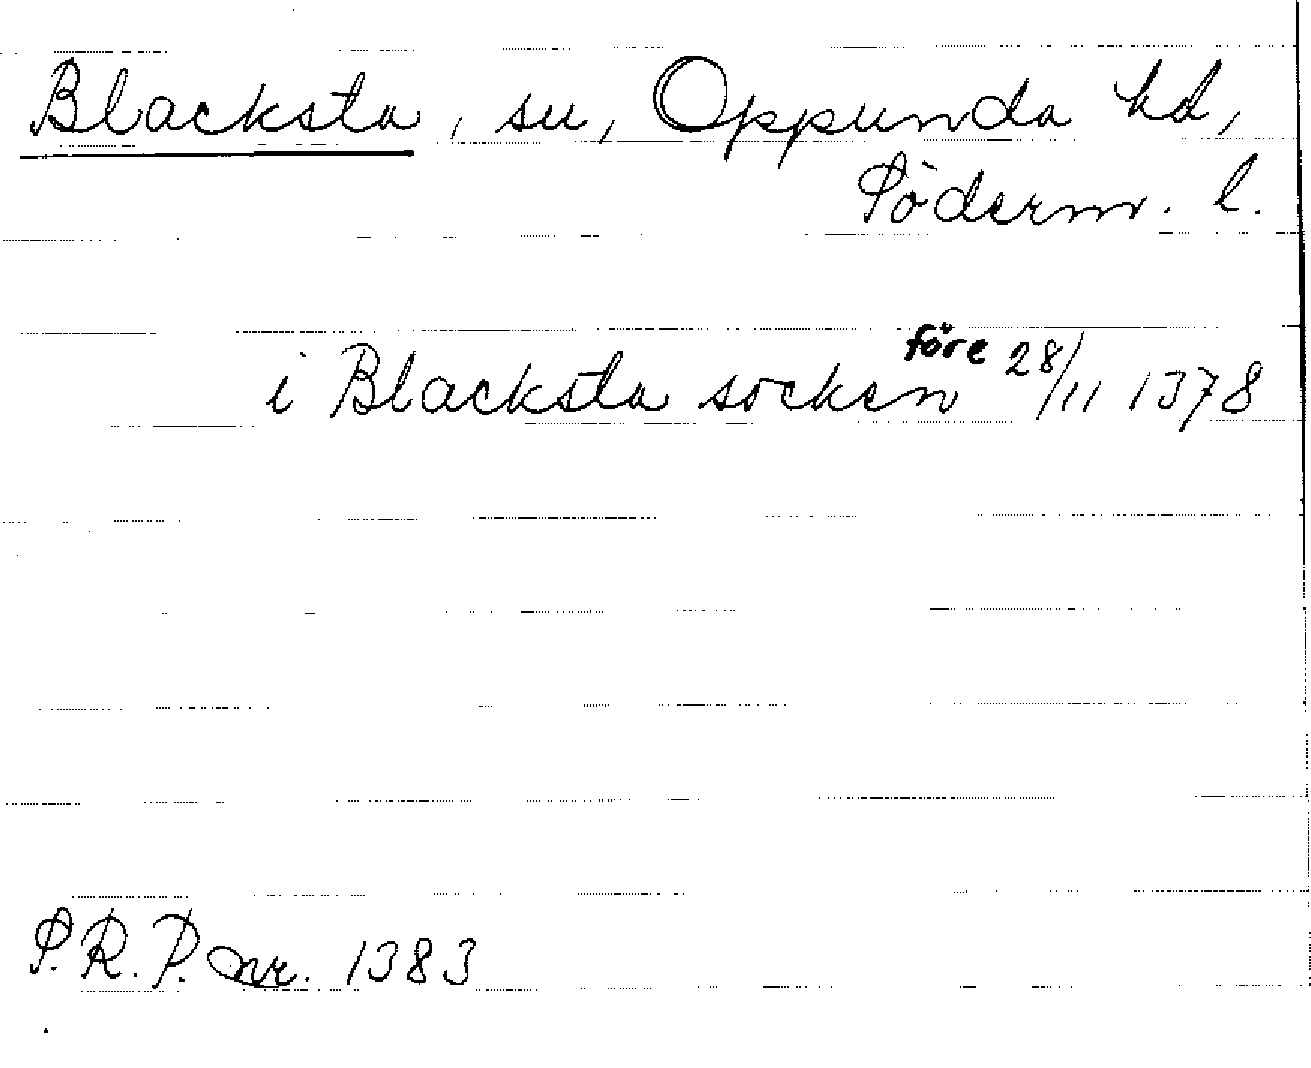 Blacksta, sn, Oppunda hd,
Söderm. l.
i Blacksta socken före 28/11 1378
S.R.P. nr. 1383